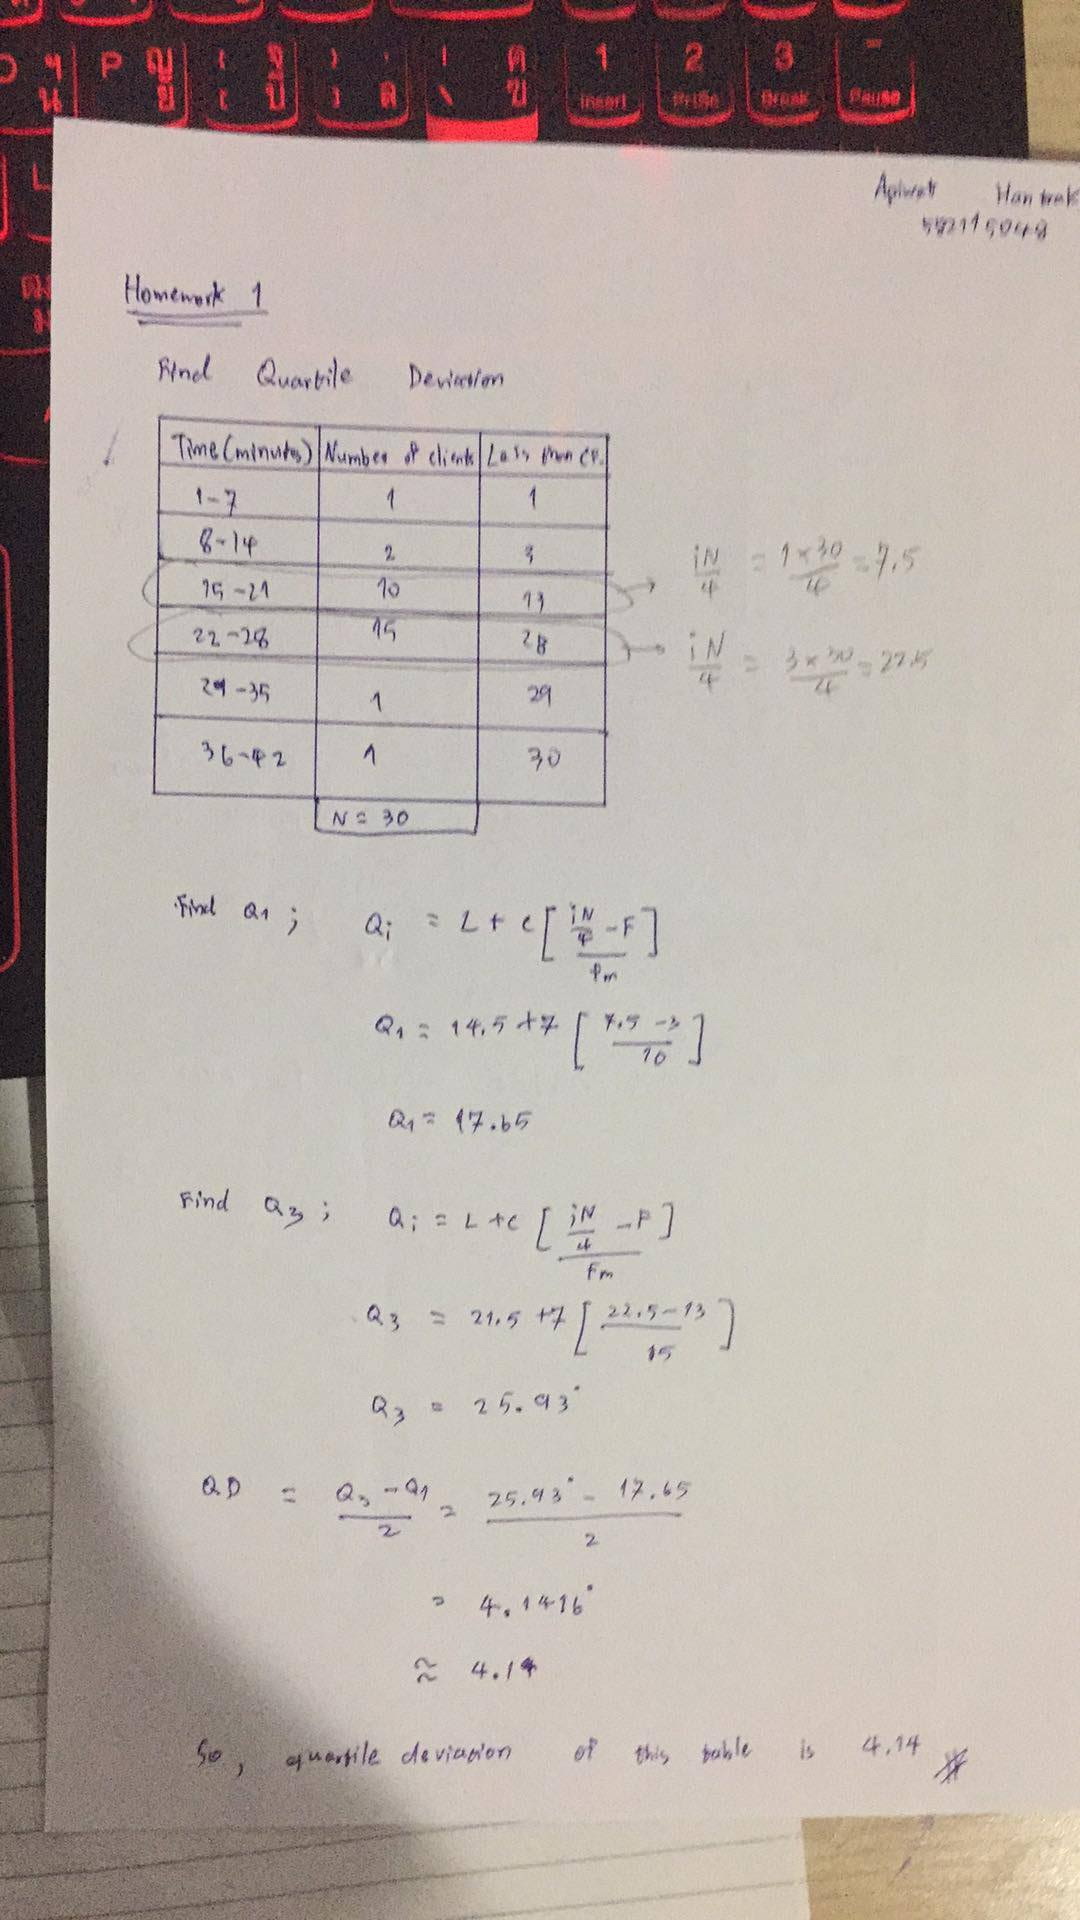 P ญ ย
1 2 3
Insert PrtSc Break Pause
Apiwat Hantrak
582115048
Homework 1
Find Quartile Deviation
Time (minutes) Number of clients Less than CF.
1-7 1 1
8-14 2 3
15-21 10 13
22-28 15 28
29-35 1 29
36-42 1 30
N = 30
iN/4 = 1×30/4 = 7.5
iN/4 = 3×30/4 = 22.5
Find Q1 ; Qi = L + c [ (iN/4 - F) / fm ]
Q1 = 14.5 + 7 [ (7.5 - 3) / 10 ]
Q1 = 17.65
Find Q3 ; Qi = L + c [ (iN/4 - F) / Fm ]
Q3 = 21.5 + 7 [ (22.5 - 13) / 15 ]
Q3 = 25.93̇
QD = (Q3 - Q1) / 2 = (25.93̇ - 17.65) / 2
= 4.1416̇
≈ 4.14
So, quartile deviation of this table is 4.14